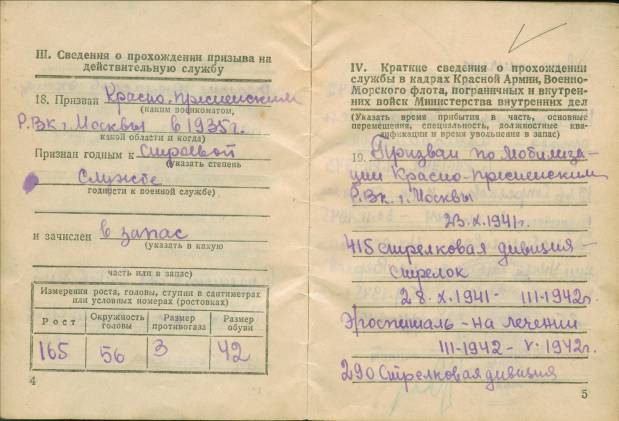 III. Сведения о прохождении призыва на
действительную службу
18. Призван Красно-Пресненским
(каким военкоматом,
Р.Вк г. Москвы в 1935 г.
какой области и когда)
Признан годным к строевой
(указать степень
службе
годности к военной службе)
и зачислен в запас
(указать в какую
часть или в запас)
Измерения роста, головы, ступни в сантиметрах
или условных номерах (ростовках)
Рост Окружность головы Размер противогаза Размер обуви
165 56 3 42
4
IV. Краткие сведения о прохождении
службы в кадрах Красной Армии, Военно-
Морского флота, пограничных и внутрен-
них войск Министерства внутренних дел
(Указать время прибытия в часть, основные
перемещения, специальность, должностные ква-
лификации и время увольнения в запас)
19. Призван по мобилиза-
ции Красно-Пресненским
Р.Вк. г. Москвы
23.X.1941г.
415 стрелковая дивизия –
стрелок
28.X.1941- III-1942г.
Эгоспиталь - на лечении
III-1942 - V. 1942г.
290 Стрелковая дивизия
5